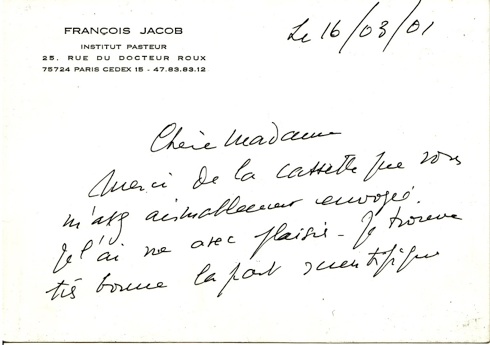 FRANÇOIS JACOB
INSTITUT PASTEUR
25, RUE DU DOCTEUR ROUX
75724 PARIS CEDEX 15 - 47.83.83.12
Le 16/03/01
Chère Madame
Merci de la cassette que vous
m'avez aimablement envoyée.
Je l'ai vue avec plaisir - Je trouve
très bonne la part scientifique